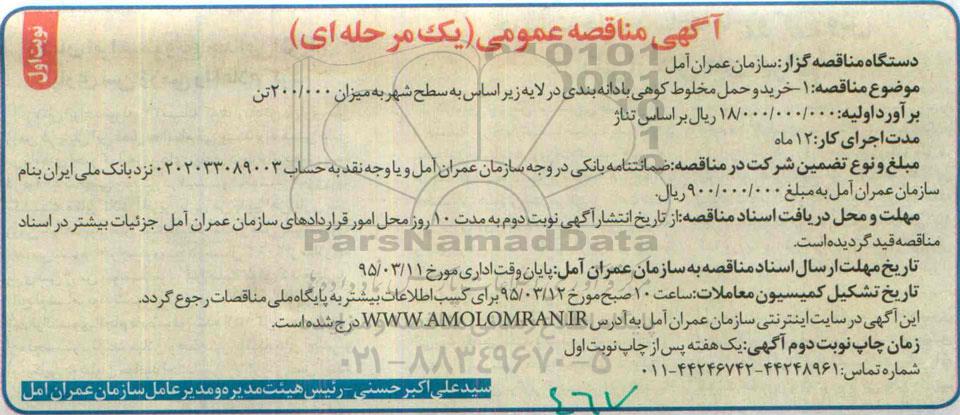 آگهی مناقصه عمومی (یک مرحله ای)
نوبت اول
دستگاه مناقصه گزار: سازمان عمران آمل
موضوع مناقصه: ۱-خرید و حمل مخلوط کوهی با دانه بندی در لایه زیر اساس به سطح شهر به میزان ۲۰۰/۰۰۰ تن
برآورد اولیه: ۱۸/۰۰۰/۰۰۰/۰۰۰ ریال بر اساس تناژ
مدت اجرای کار: ۱۲ ماه
مبلغ و نوع تضمین شرکت در مناقصه: ضمانتنامه بانکی در وجه سازمان عمران آمل و یا وجه نقد به حساب ۰۲۰۲۰۳۳۰۸۹۰۰۳ نزد بانک ملی ایران بنام
سازمان عمران آمل به مبلغ ۹۰۰/۰۰۰/۰۰۰ ریال.
مهلت و محل دریافت اسناد مناقصه: از تاریخ انتشار آگهی نوبت دوم به مدت ۱۰ روز محل امور قراردادهای سازمان عمران آمل جزئیات بیشتر در اسناد
مناقصه قید گردیده است.
تاریخ مهلت ارسال اسناد مناقصه به سازمان عمران آمل: پایان وقت اداری مورخ ۹۵/۰۳/۱۱
تاریخ تشکیل کمیسیون معاملات: ساعت ۱۰ صبح مورخ ۹۵/۰۳/۱۲ برای کسب اطلاعات بیشتر به پایگاه ملی مناقصات رجوع گردد.
این آگهی در سایت اینترنتی سازمان عمران آمل به آدرس WWW.AMOLOMRAN.IR درج شده است.
زمان چاپ نوبت دوم آگهی: یک هفته پس از چاپ نوبت اول
شماره تماس: ۴۴۲۴۸۹۶۱-۴۴۲۴۶۷۴۲-۰۱۱
سید علی اکبر حسنی - رئیس هیئت مدیره و مدیر عامل سازمان عمران آمل
ParsNamadData
۰۲۱-۸۸۳۴۹۶۷۰-۵